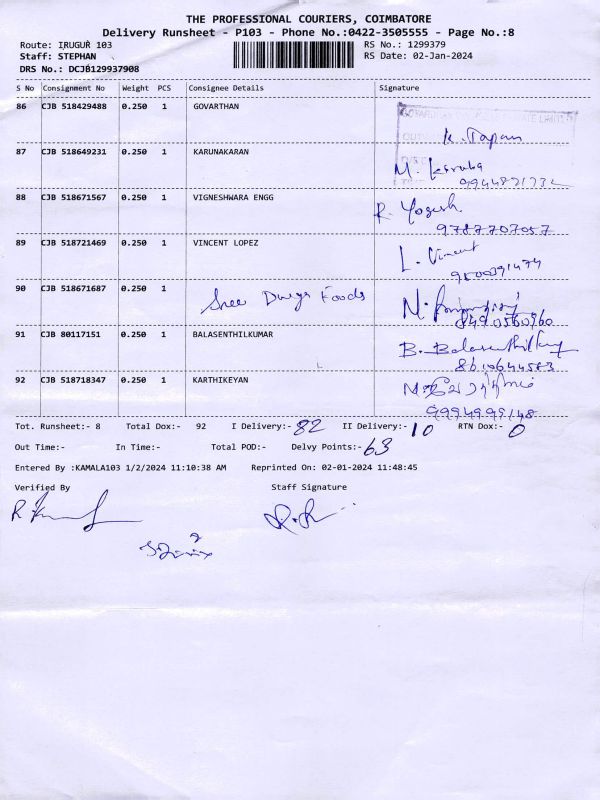 THE PROFESSIONAL COURIERS, COIMBATORE
Delivery Runsheet - P103 - Phone No.:0422-3505555 - Page No.:8
Route: IRUGUR 103 RS No.: 1299379
Staff: STEPHAN RS Date: 02-Jan-2024
DRS No.: DCJB129937908
S No Consignment No Weight PCS Consignee Details Signature
86 CJB 518429488 0.250 1 GOVARTHAN
K. Tapan
87 CJB 518649231 0.250 1 KARUNAKARAN M.
88 CJB 518671567 0.250 1 VIGNESHWARA ENGG R. Yogesh
9787707057
89 CJB 518721469 0.250 1 VINCENT LOPEZ L. Vincent
9500391474
90 CJB 518671687 0.250 1 Sree Durga Foods
8490560960
91 CJB 80117151 0.250 1 BALASENTHILKUMAR B. Balasenthilkumar
8610644583
92 CJB 518718347 0.250 1 KARTHIKEYAN
9994999148
Tot. Runsheet:- 8 Total Dox:- 92 I Delivery:- 82 II Delivery:- 10 RTN Dox:- 0
Out Time:- In Time:- Total POD:- Delvy Points:- 63
Entered By :KAMALA103 1/2/2024 11:10:38 AM Reprinted On: 02-01-2024 11:48:45
Verified By Staff Signature